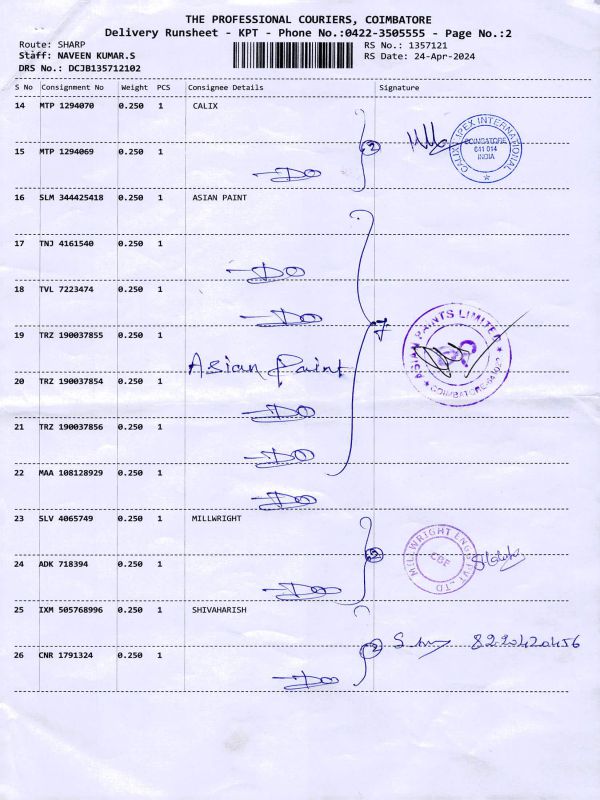 THE PROFESSIONAL COURIERS, COIMBATORE
Delivery Runsheet - KPT - Phone No.:0422-3505555 - Page No.:2
Route: SHARP
Staff: NAVEEN KUMAR.S
DRS No.: DCJB135712102
RS No.: 1357121
RS Date: 24-Apr-2024
S No Consignment No Weight PCS Consignee Details Signature
14 MTP 1294070 0.250 1 CALIX
2
CALIX IPEX INTERNATIONAL
COIMBATORE
641 014
INDIA
15 MTP 1294069 0.250 1
DO
16 SLM 344425418 0.250 1 ASIAN PAINT
17 TNJ 4161540 0.250 1
DO
18 TVL 7223474 0.250 1
DO
7
ASIAN PAINTS LIMITED
19 TRZ 190037855 0.250 1
Asian Paint
20 TRZ 190037854 0.250 1
DO
21 TRZ 190037856 0.250 1
DO
22 MAA 108128929 0.250 1
DO
23 SLV 4065749 0.250 1 MILLWRIGHT
2
MILLWRIGHT ENGG PVT LTD
CBE
24 ADK 718394 0.250 1
DO
25 IXM 505768996 0.250 1 SHIVAHARISH
2 8220420456
26 CNR 1791324 0.250 1
DO